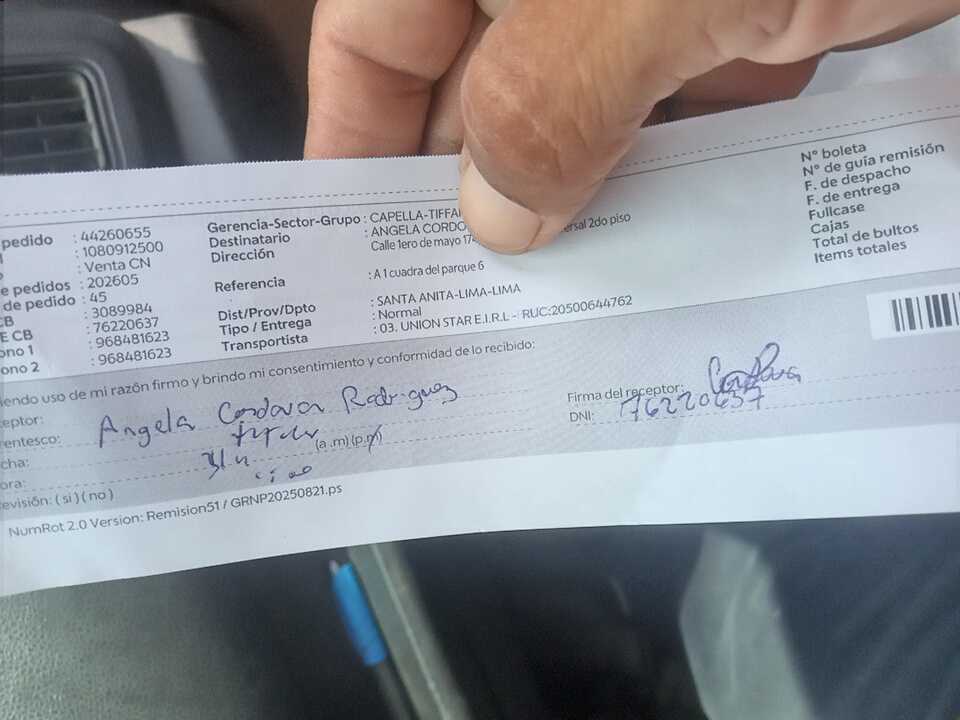 pedido : 44260655
: 1080912500
: Venta CN
e pedidos : 202605
de pedido : 45
CB : 3089984
E CB : 76220637
ono 1 : 968481623
ono 2 : 968481623
Gerencia-Sector-Grupo : CAPELLA-TIFFA
Destinatario : ANGELA CORDO
Dirección Calle 1ero de mayo 17 ersal 2do piso
Referencia : A 1 cuadra del parque 6
Dist/Prov/Dpto : SANTA ANITA-LIMA-LIMA
Tipo / Entrega : Normal
Transportista : 03. UNION STAR E.I.R.L - RUC:20500644762
N° boleta
N° de guía remisión
F. de despacho
F. de entrega
Fullcase
Cajas
Total de bultos
Items totales
iendo uso de mi razón firmo y brindo mi consentimiento y conformidad de lo recibido:
eptor: Angela Cordova Rodriguez
entesco: titular
cha:
ora: (a.m) (p.m)
evisión: ( si ) ( no )
Firma del receptor: Cordova
DNI: 76220637
NumRot 2.0 Version: Remision51 / GRNP20250821.ps